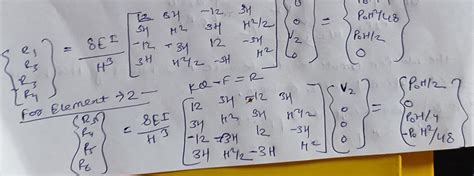 {R1 R2 R3 R4} = 8EI/H³ [12 3H -12 3H
3H H² 3H H²/2
-12 -3H 12 -3H
3H H²/2 -3H H²] {0 0 V2 0} = {P0H/2
P0H²/48
0}
KQ-F=R
For Element → 2 -
{R3 R4 R5 R6} = 8EI/H³ [12 3H -12 3H
3H H² 3H H²/2
-12 -3H 12 -3H
3H H²/2 -3H H²] {V2 0 0 0} = {P0H/2
0
P0H/4
-P0H²/48}